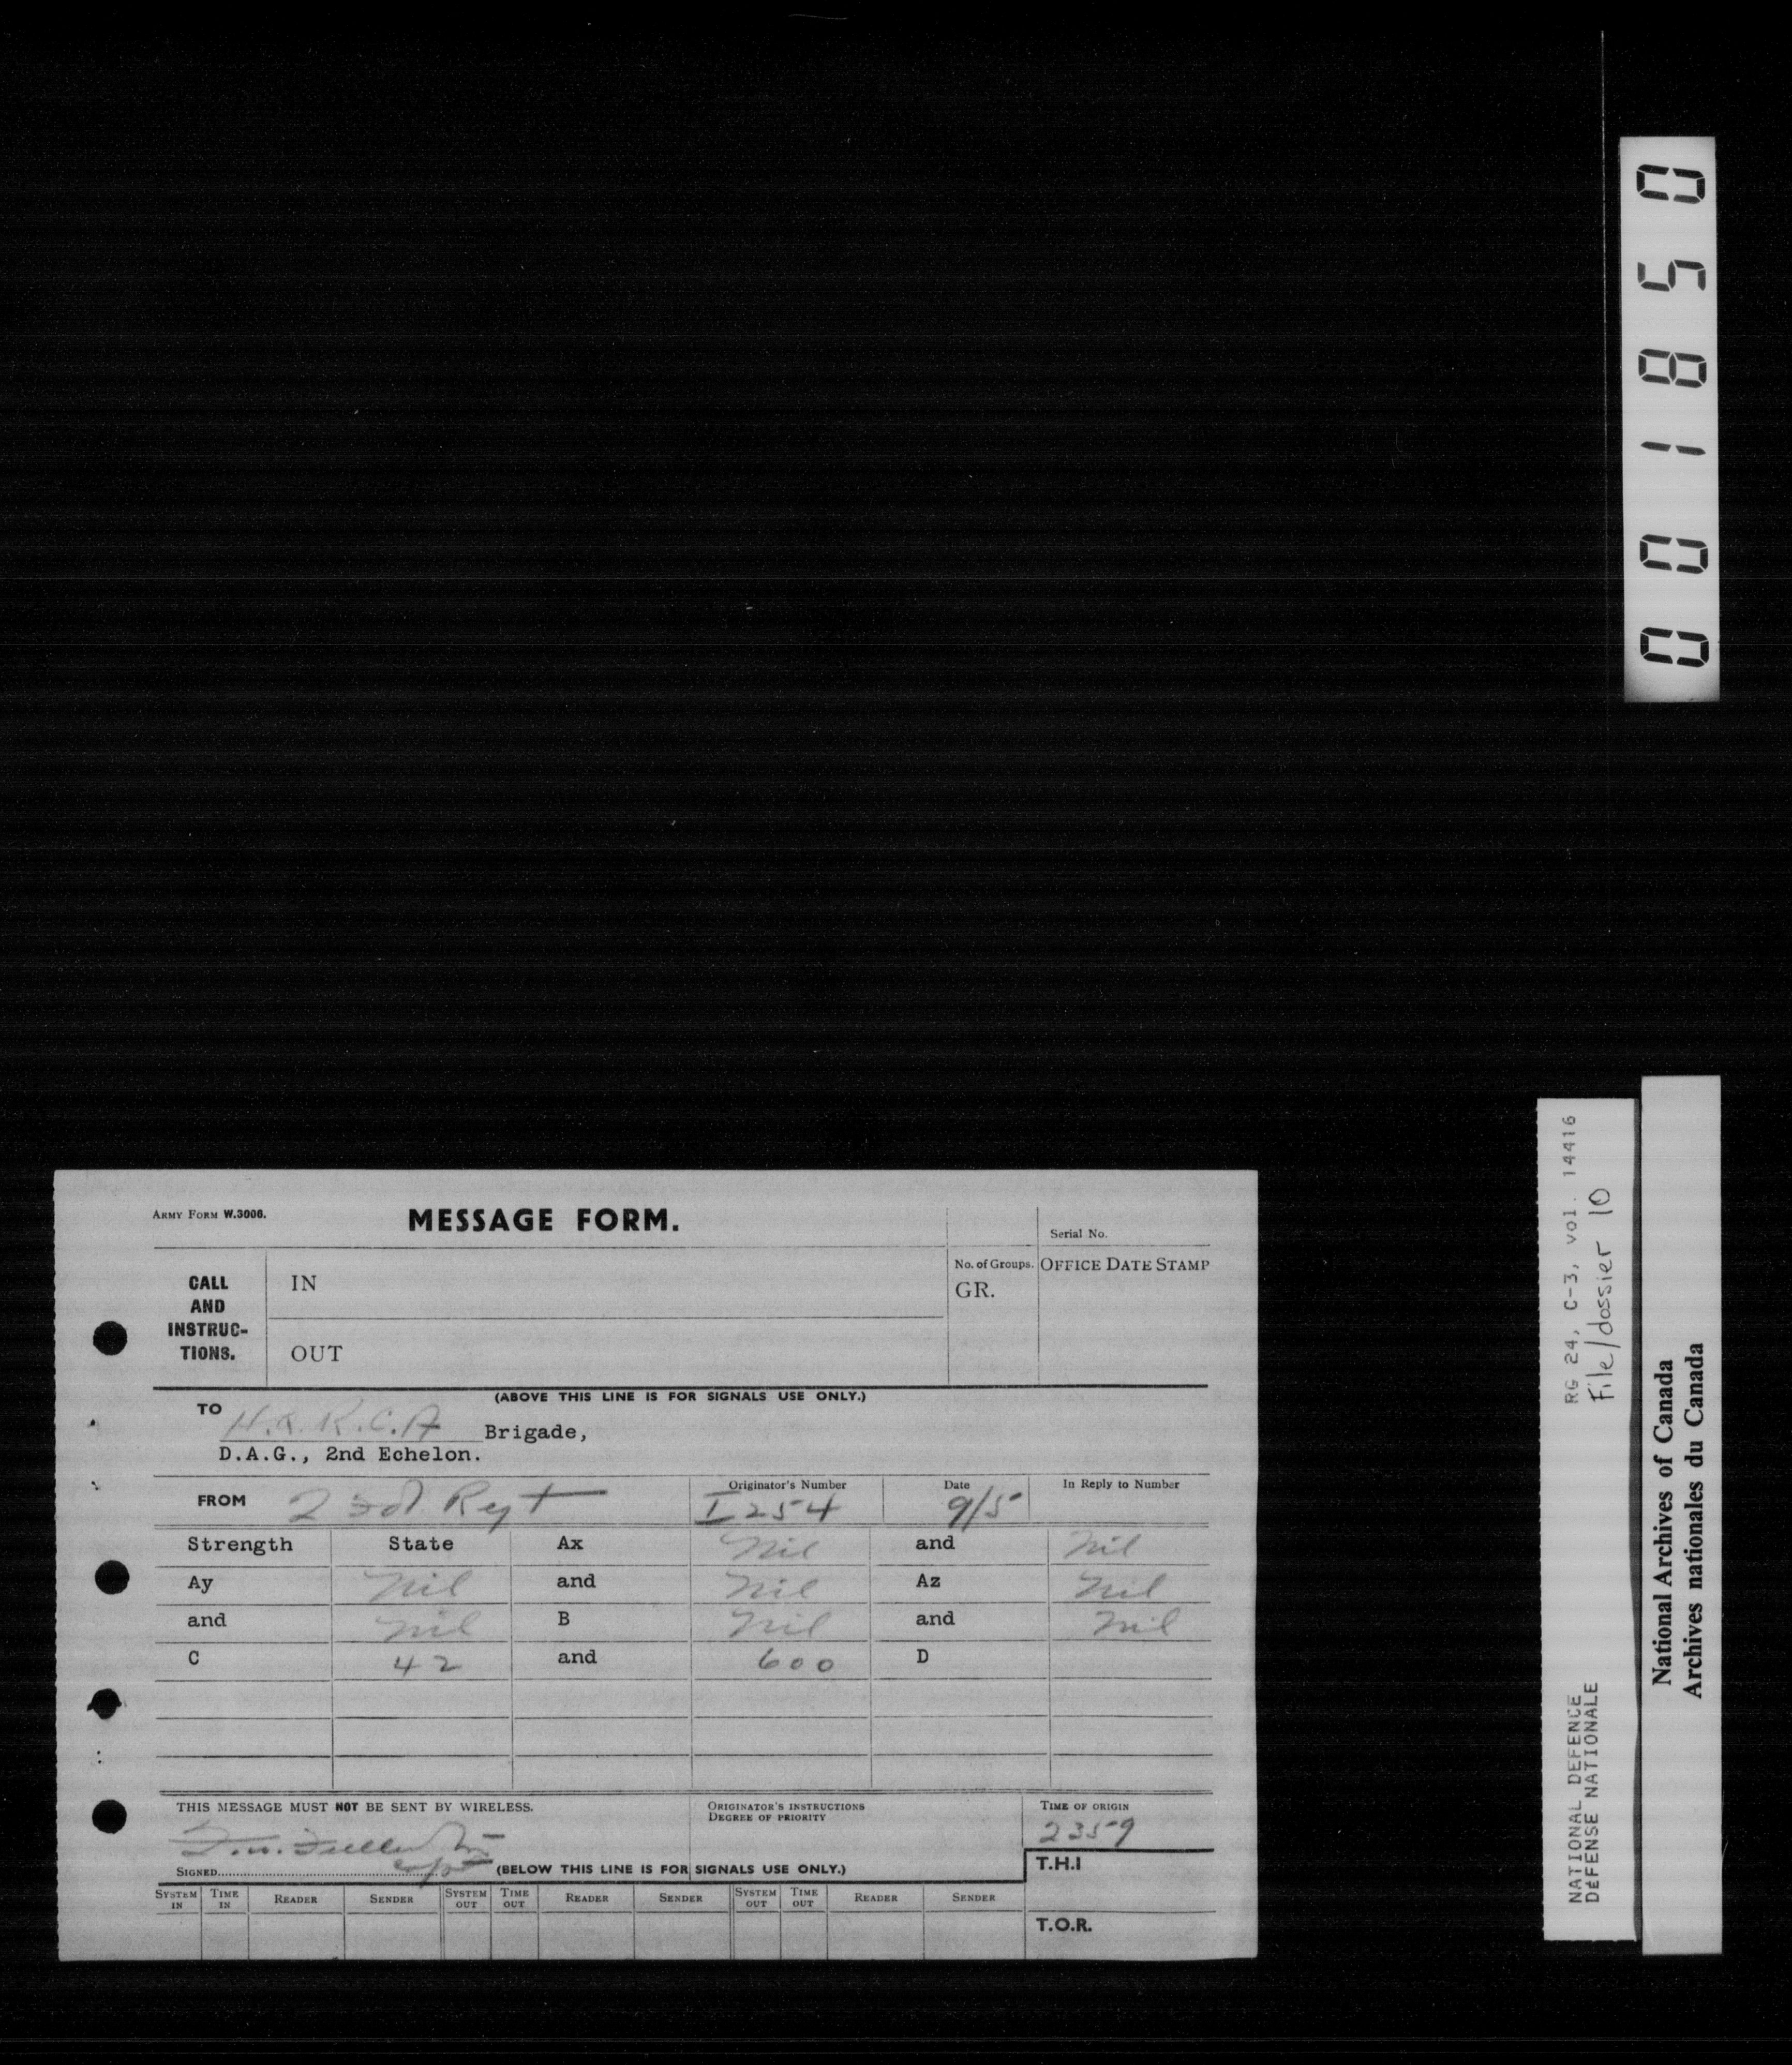 001850
ARMY FORM W.3006.
MESSAGE FORM.
Serial No.
CALL AND INSTRUC-TIONS.
IN
No. of Groups.
GR.
OFFICE DATE STAMP
OUT
(ABOVE THIS LINE IS FOR SIGNALS USE ONLY.)
TO H.Q. R.C.A Brigade,
D.A.G., 2nd Echelon.
FROM 23rd Regt
Originator's Number I 254
Date 9/5
In Reply to Number
Strength State Ax Nil and Nil
Ay Nil and Nil Az Nil
and Nil B Nil and Nil
C 42 and 600 D
THIS MESSAGE MUST NOT BE SENT BY WIRELESS.
ORIGINATOR'S INSTRUCTIONS
DEGREE OF PRIORITY
TIME OF ORIGIN
2359
SIGNED Capt
(BELOW THIS LINE IS FOR SIGNALS USE ONLY.)
T.H.I
SYSTEM IN TIME IN READER SENDER SYSTEM OUT TIME OUT READER SENDER SYSTEM OUT TIME OUT READER SENDER
T.O.R.
RG 24, C-3, vol. 14416
File/dossier 10
NATIONAL DEFENCE
DÉFENSE NATIONALE
National Archives of Canada
Archives nationales du Canada